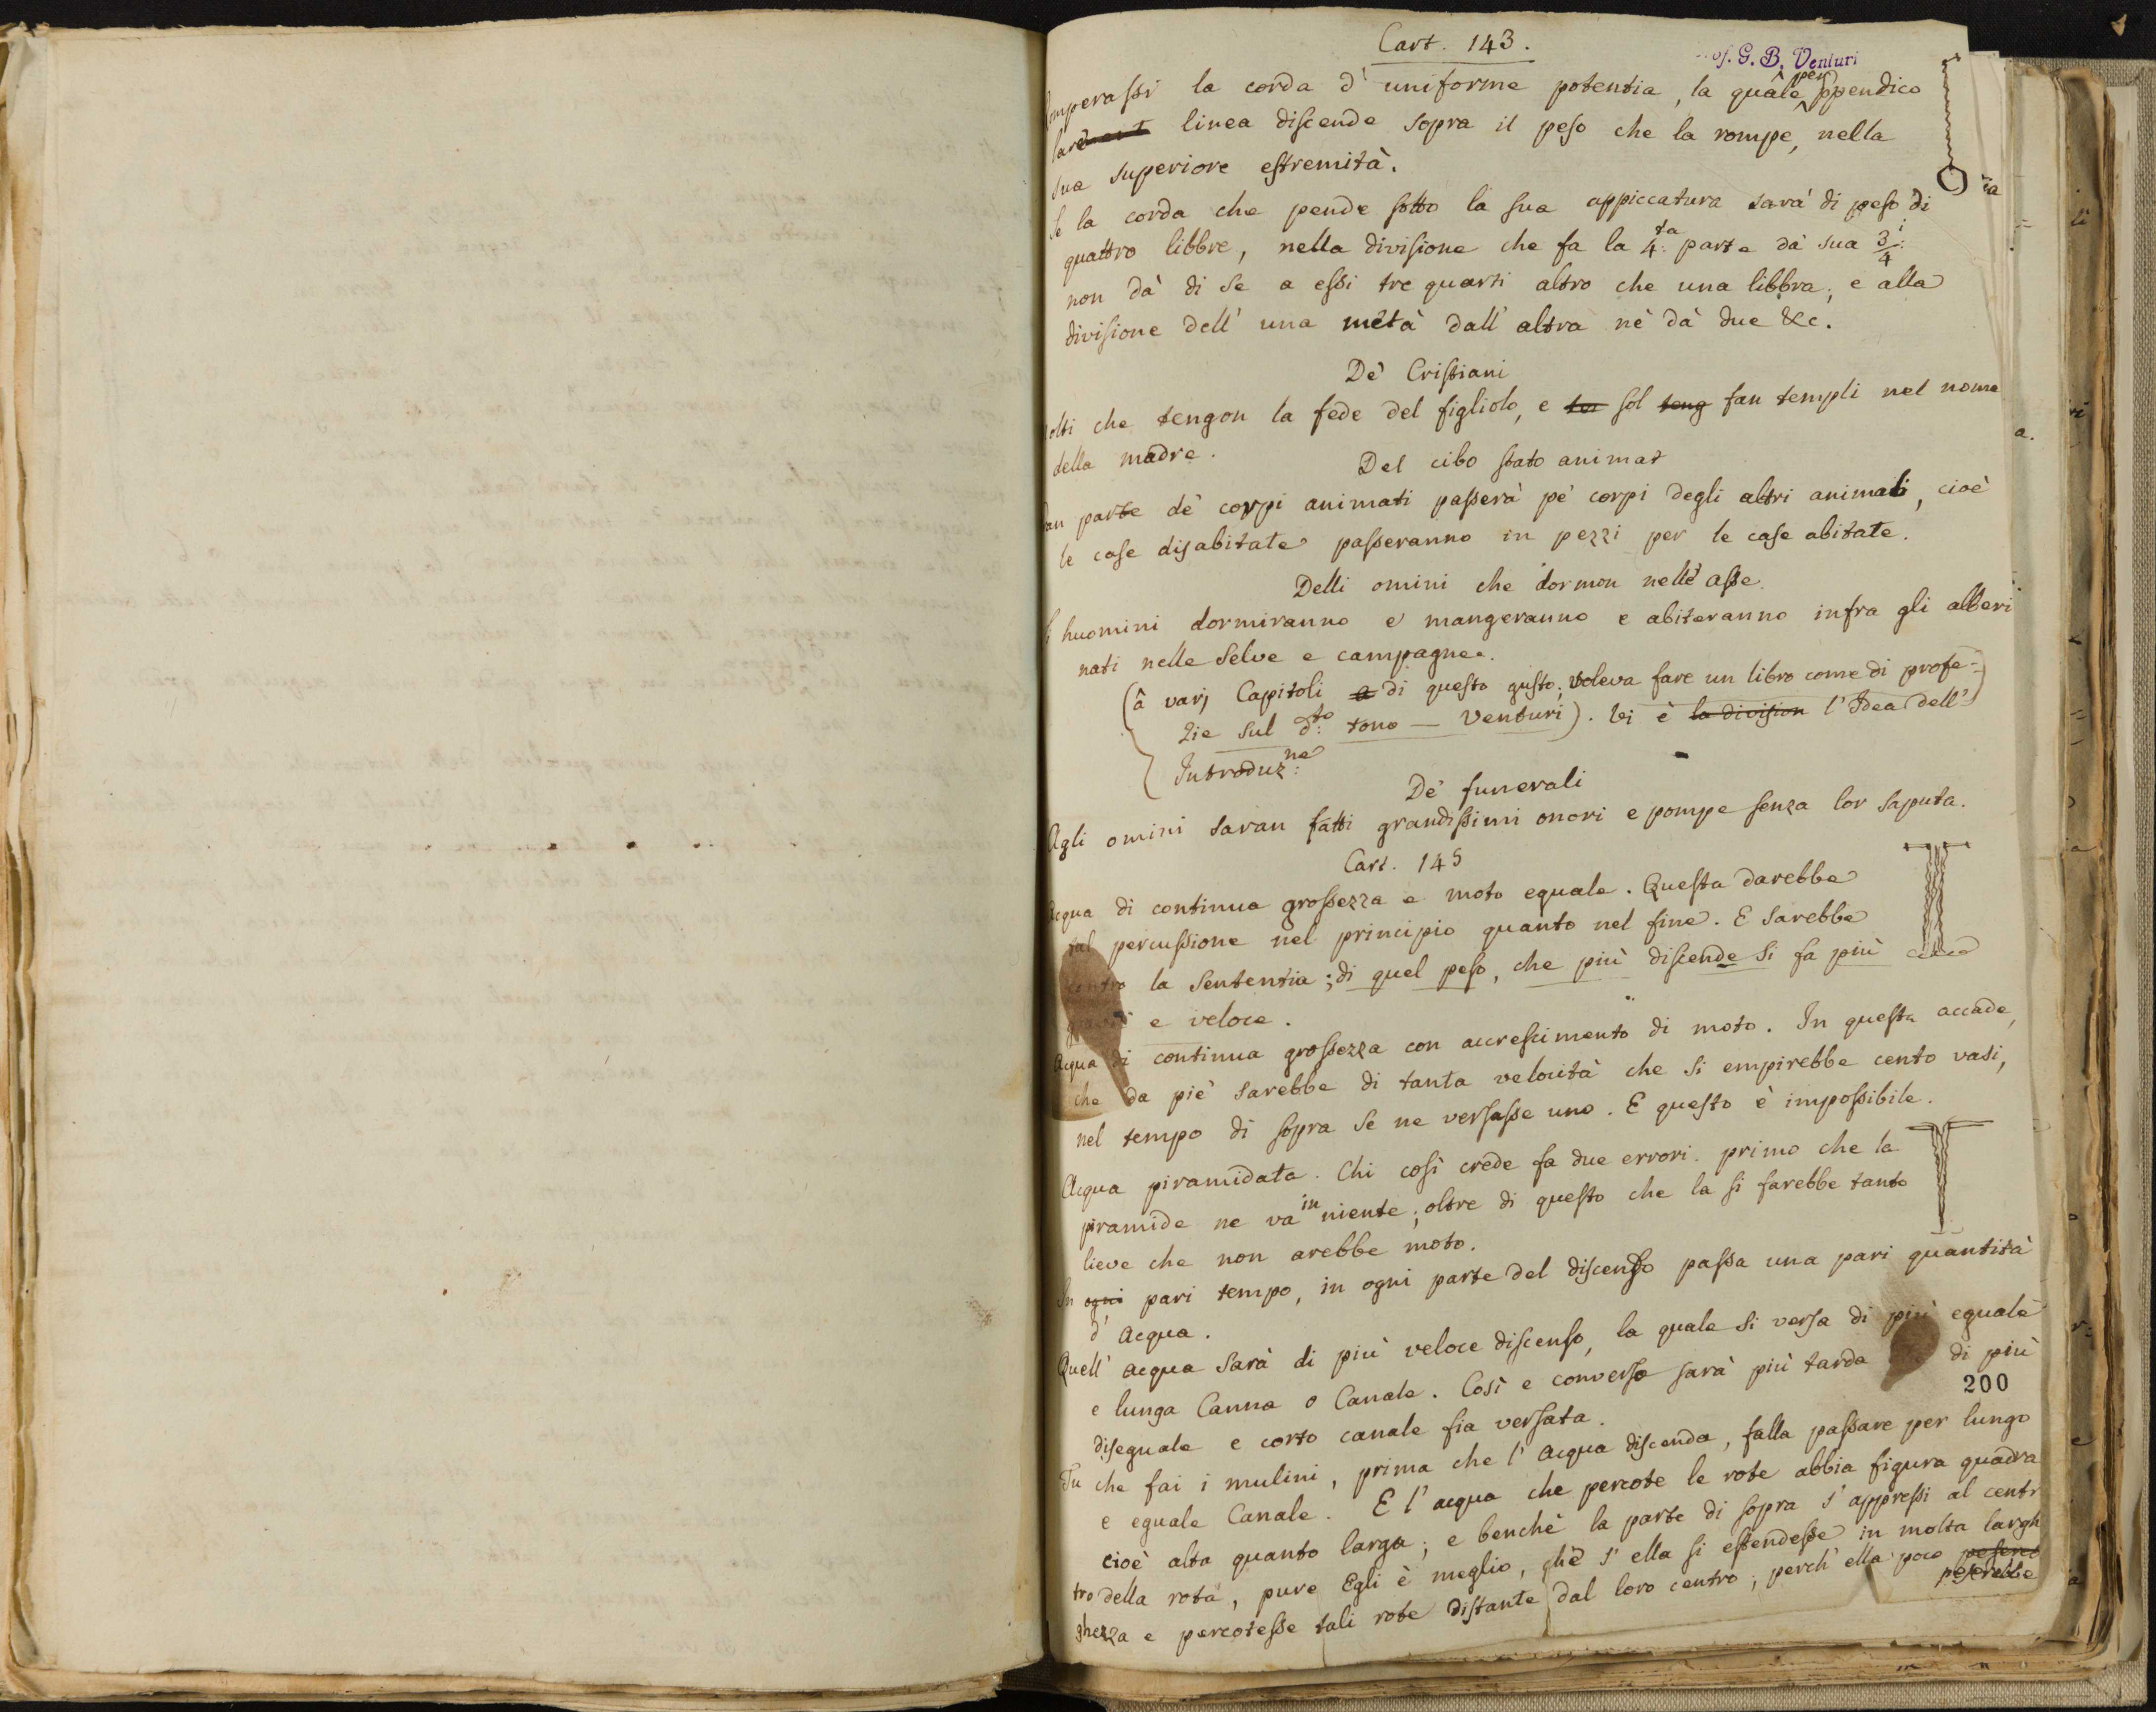 Cart. 143.
of. G. B. Venturi
Romperassi la corda d' uniforme potentia, la quale per ppendico
lare linea discende sopra il peso che la rompe, nella
sua superiore estremità.
Se la corda che pende sotto la sua appiccatura sarà di peso di
quattro libbre, nella divisione che fa la 4.ta parte da sua 3/4.i
non dà di se a essi tre quarti altro che una libbra; e alla
divisione dell' una metà dall' altra nè dà due &c.
De' Cristiani
olti che tengon la fede del figliolo, e ten sol teng fan templi nel nome
della madre.
Del cibo stato animat
an parte de' corpi animati passerà pe' corpi degli altri animali, cioè
le case disabitate passeranno in pezzi per le case abitate.
Delli omini che dormon nelle asse.
li huomini dormiranno e mangeranno e abiteranno infra gli alberi
nati nelle selve e campagne.
(â varj Capitoli a di questo gusto; voleva fare un libro come di profe-
zie sul d.to tono — Venturi). Vi è la division l' Idea dell'
Introduz.ne
De' funerali
Agli omini saran fatti grandissimi onori e pompe senza lor saputa.
Cart. 145
Acqua di continua grossezza e moto eguale. Questa darebbe
tal percussione nel principio quanto nel fine. E sarebbe
contro la sententia; di quel peso, che più discende si fa più
e veloce.
Acqua di continua grossezza con accrescimento di moto. In questa accade,
che da piè sarebbe di tanta velocità che si empirebbe cento vasi,
nel tempo di sopra se ne versasse uno. E questo è impossibile.
Acqua piramidata. Chi così crede fa due errori. primo che la
piramide ne va in niente; oltre di questo che la si farebbe tanto
lieve che non arebbe moto.
In ogni pari tempo, in ogni parte del discenso passa una pari quantità
d' acqua.
Quell' acqua sarà di più veloce discenso, la quale si versa di più eguale
e lunga Canna o Canale. Così e converso sarà più tarda di più
200
diseguale e corto canale fia versata.
Tu che fai i mulini, prima che l' acqua discenda, falla passare per lungo
e eguale Canale. E l' acqua che percote le rote abbia figura quadra
cioè alta quanto larga; e benchè la parte di sopra s' appressi al centr
tro della rota, pure Egli è meglio, chè s' ella si estendesse in molta largh
ghezza e percotesse tali rote distante dal loro centro; perch' ella poco peserebb
peserebbe